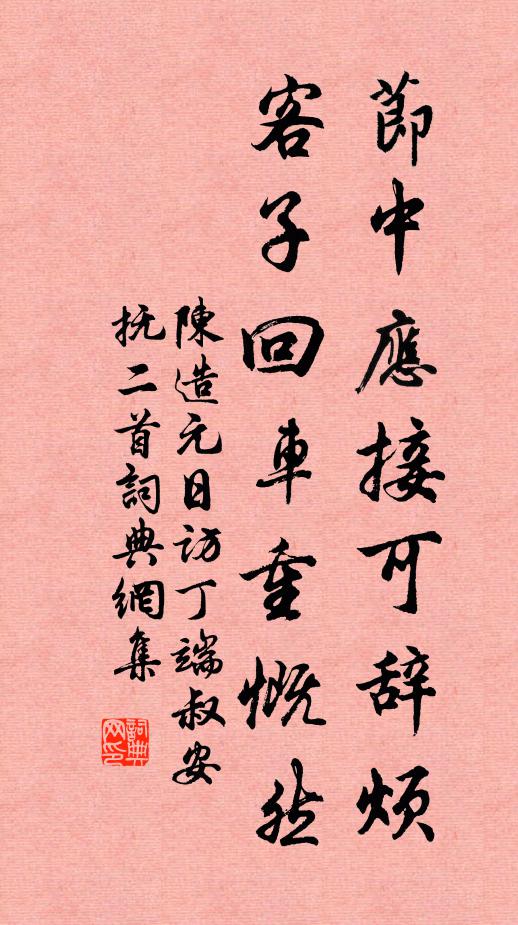 節中應接可辞煩
客子回車重慨然
陳造元日访丁端叔安
抚二首詞典網集
詞典网印